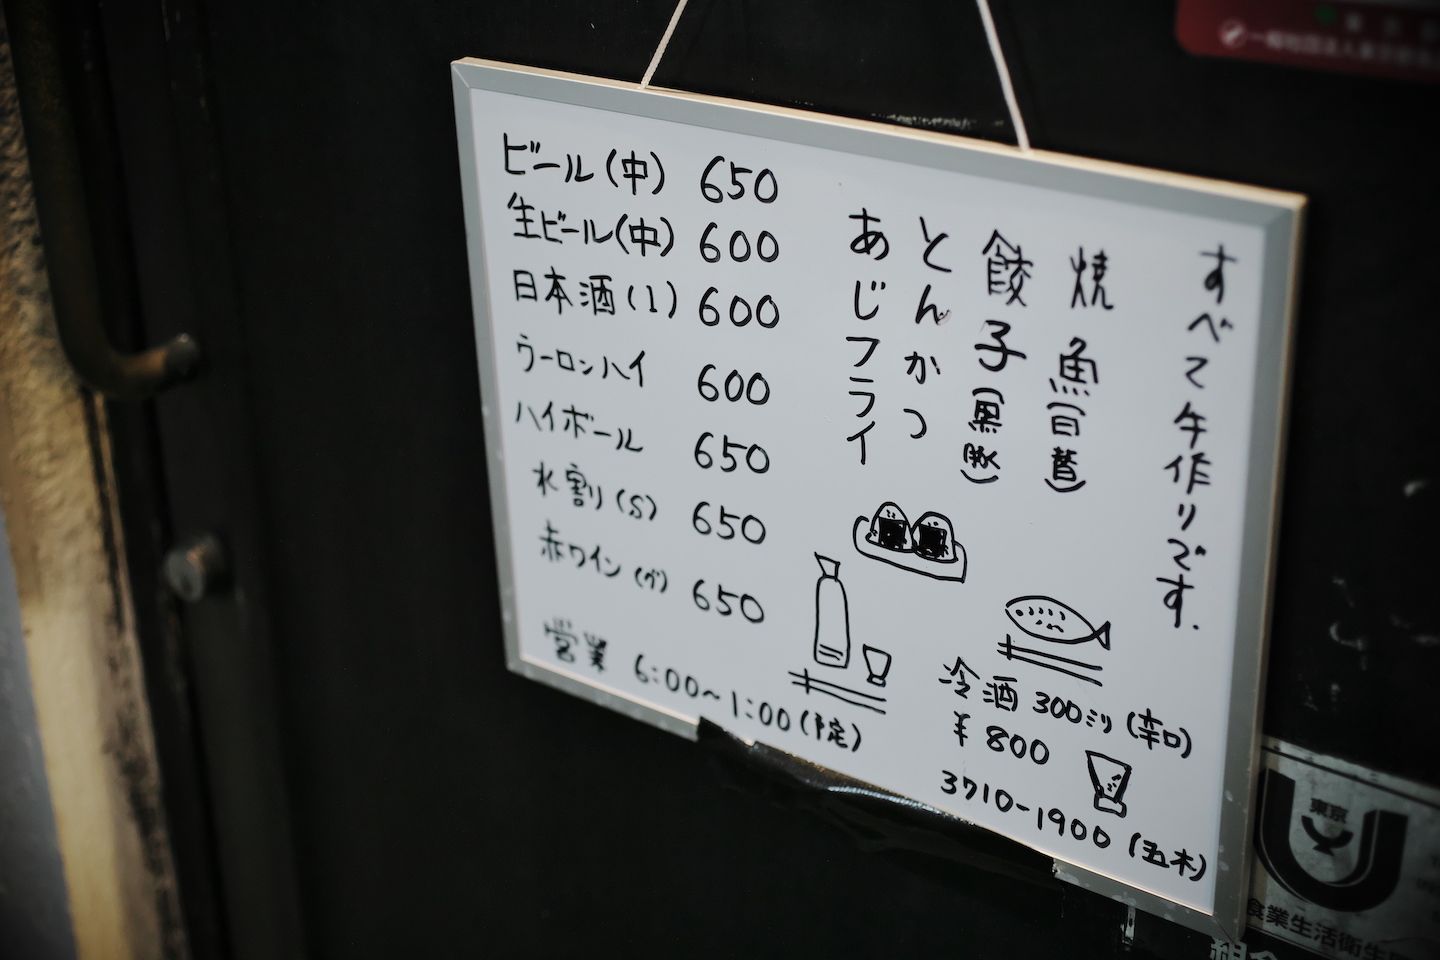 ビール(中) 650
生ビール(中) 600
日本酒(1) 600
ウーロンハイ 600
ハイボール 650
水割り(S) 650
赤ワイン(グ) 650
営業 6:00〜1:00(予定)
すべて手作りです.
焼魚(白鶯)
餃子(黒豚)
とんかつ
あじフライ
冷酒 300ミリ(辛口)
¥800
3710-1900(五木)
東京
食業生活衛生
組合